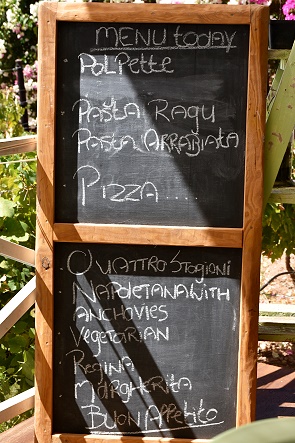 MENU today
Polpette
Pasta Ragu
Pasta Arrabiata
Pizza.....
Quattro Stagioni
Napoletana with
anchovies
Vegetarian
Regina
Margherita
Buon Appetito